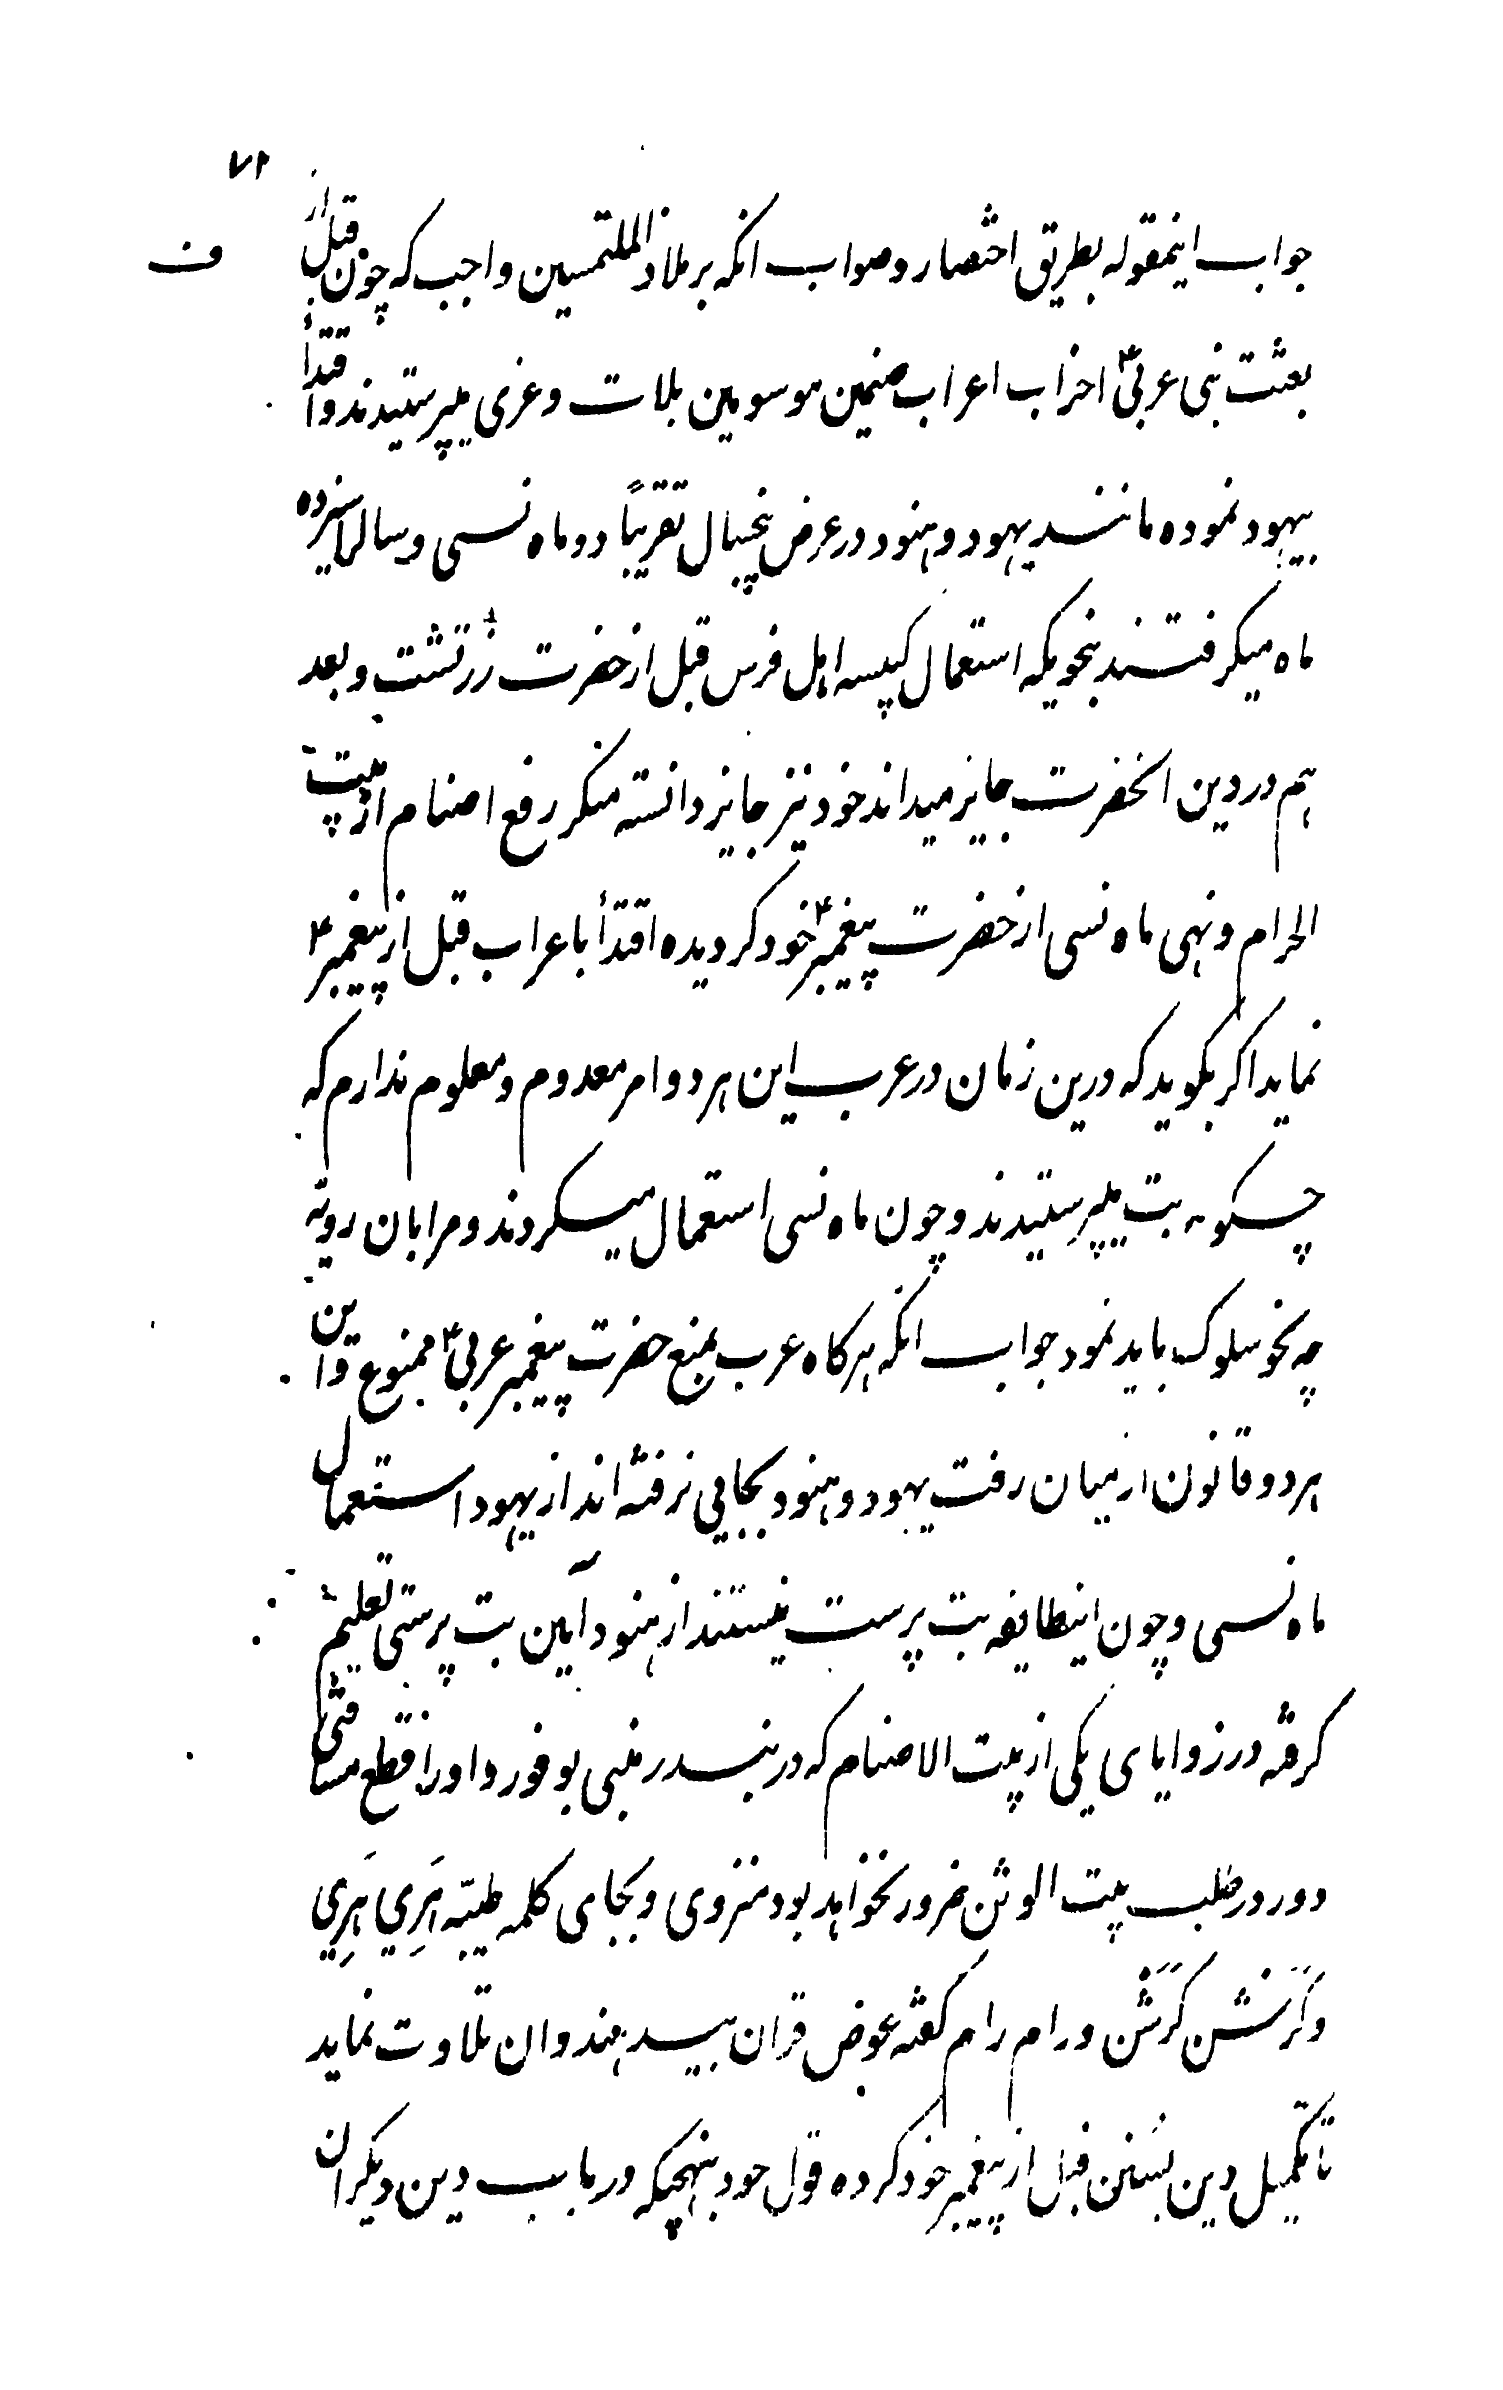 ۷۱
جواب اینمقوله بطریق اختصار و صواب انکه بر ملاذ الملتمسین واجب که چون قبل از
ف
بعثت نبی عربی ۴ احزاب اعراب صنمین موسومین بلات و عزی میپرستیدند و اقتدأ
بیهود نموده مانند یهود و هنود در عرض پنجسال تقریباً دو ماه نسی و سالرا سیزده
ماه میکرفتند بنحویکه استعمال کبیسه اهل فرس قبل از حضرت زرتشت و بعد
هم در دین انحضرت جایز میداند خود نیز جایز دانسته منکر رفع اصنام از بیت
الحرام و نهی ماه نسی از حضرت پیغمبر ۴ خود کردیده اقتدأ باعراب قبل از پیغمبر ۴
نماید اکر بکوید که درین زمان در عرب این هر دو امر معدوم و معلوم ندارم که
چسکونه بت میپرستیدند و چون ماه نسی استعمال میکردند و مرا بان رویه
چه نحو سلوک باید نمود جواب انکه هرکاه عرب بمنع حضرت پیغمبر عربی ۴ ممنوع و این
هر دو قانون از میان رفت یهود و هنود بجایی نرفته اند از یهود استعمال
ماه نسی و چون اینطایفه بت پرست نیستند از هنود آیین بت پرستی تعلیم
کرفته در زوایای یکی از بیت الاصنام که در بندر منبی بوفور و اورا قطع مسافتی
دور در طلب بیت الوثن ضرور نخواهد بود منزوی و بجای کلمه طیبّه هَرِي هَرِي
و کَرَشن کَرَشَن و رام رام کفته عوض قران بید هندوان تلاوت نماید
تا تکمیل دین بسُنن قبل از پیغمبر خود کرده قول خود بنهجیکه در باب دین دیکران